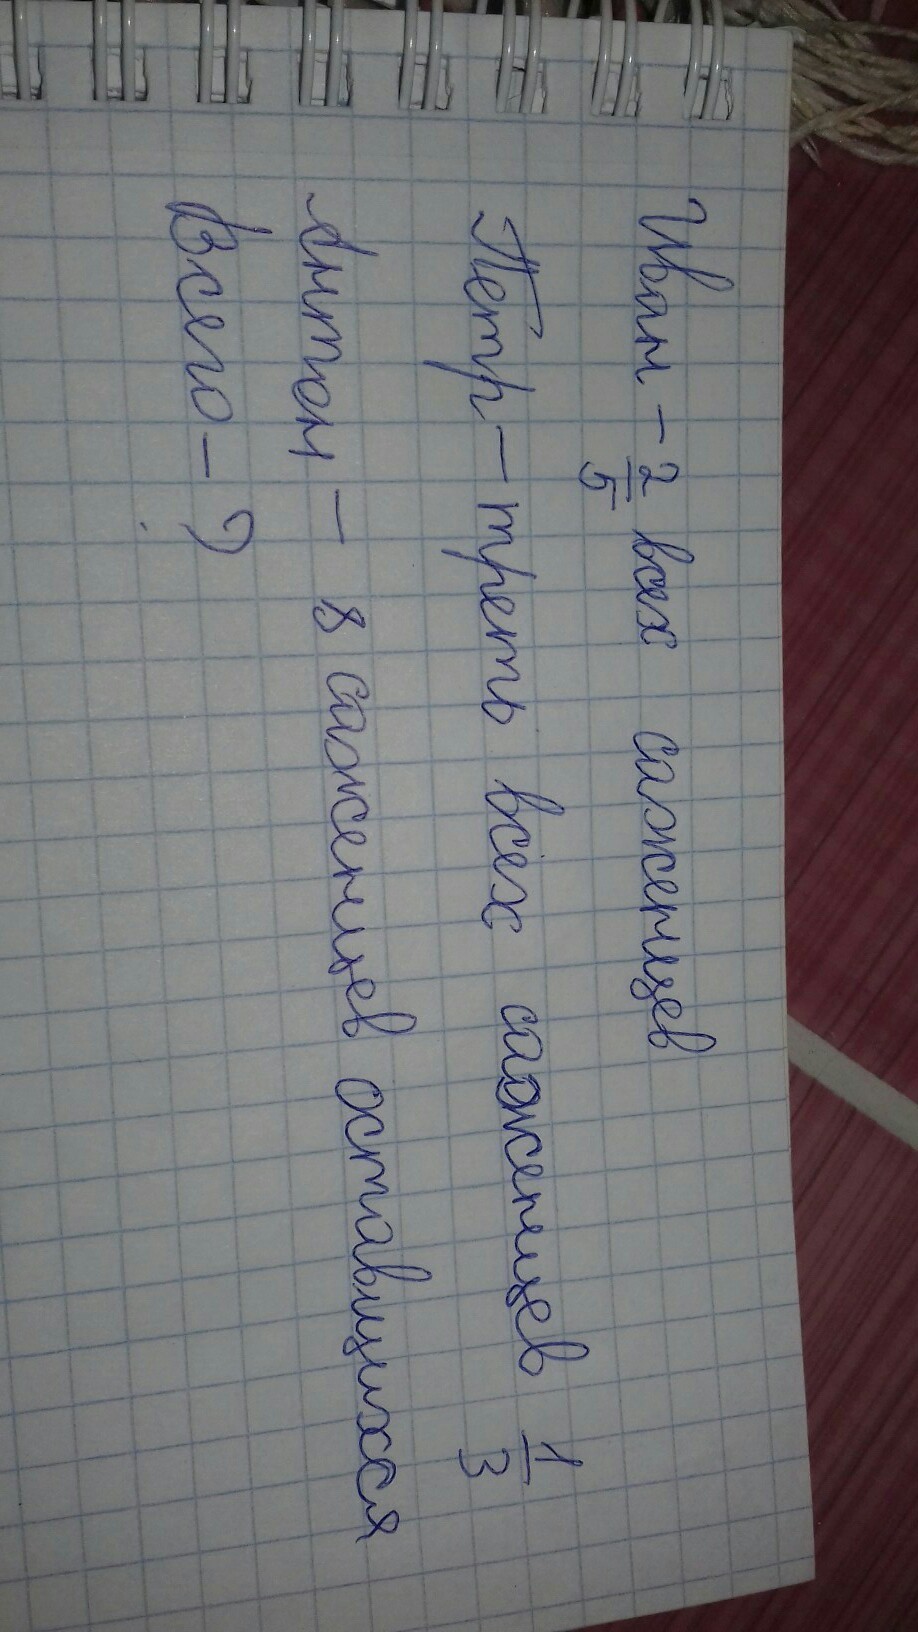 Иван - 2/5 всех саженцев
Петр - треть всех саженцев 1/3
Антон - 8 саженцев оставшихся
Всего - ?